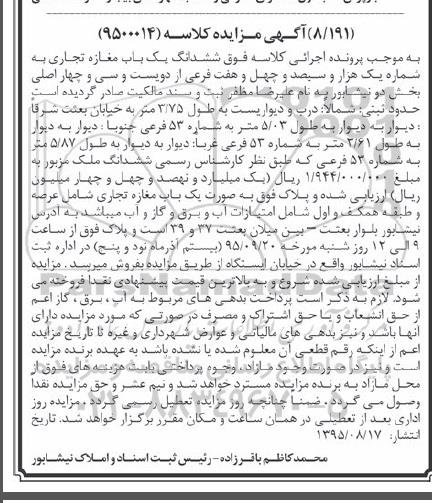 (۸/۱۹۱) آگهی مزایده کلاسه (۹۵۰۰۰۱۴)
به موجب پرونده اجرائی کلاسه فوق ششدانگ یک باب مغازه تجاری به
شماره یک هزار و سیصد و چهل و هفت فرعی از دویست و سی و چهار اصلی
بخش دو نیشابور به نام علیرضا مظفر نیت و سند مالکیت صادر گردیده است
حدود نیتی: شمالا: درب و دیواریست به طول ۳/۷۵ متر به خیابان بعثت شرقا
: دیوار به دیوار به طول ۵/۰۳ متر به شماره ۵۳ فرعی جنوبا : دیوار به دیوار
به طول ۳/۶۱ متر به شماره ۵۳ فرعی غربا: دیوار به دیوار به طول ۵/۸۷ متر
به شماره ۵۳ فرعی که طبق نظر کارشناس رسمی ششدانگ ملک مزبور به
مبلغ ۱/۹۴۴/۰۰۰/۰۰۰ ریال (یک میلیارد و نهصد و چهل و چهار میلیون
ریال) ارزیابی شده و پلاک فوق به صورت یک باب مغازه تجاری شامل عرصه
و طبقه همکف و اول شامل امتیازات آب و برق و گاز و آب میباشد به آدرس
نیشابور بلوار بعثت - بین میلان بعثت ۳۷ و ۳۹ است و پلاک فوق از ساعت
۹ الی ۱۲ روز شنبه مورخه ۹۵/۰۹/۲۰ (بیستم آذرماه نود و پنج) در اداره ثبت
اسناد نیشابور واقع در خیابان ایستگاه از طریق مزایده بفروش میرسد. مزایده
از مبلغ ارزیابی شده شروع و به بالاترین قیمت پیشنهادی نقدا فروخته می
شود. لازم به ذکر است پرداخت بدهی های مربوط به آب ، برق ، گاز اعم
از حق انشعاب و یا حق اشتراک و مصرف در صورتی که مورد مزایده دارای
آنها باشد و نیز بدهی های مالیاتی و عوارض شهرداری و غیره تا تاریخ مزایده
اعم از اینکه رقم قطعی آن معلوم شده یا نشده باشد به عهده برنده مزایده
است و نیز در صورت وجود مازاد، وجوه پرداختی بابت هزینه های فوق از
محل مازاد به برنده مزایده مسترد خواهد شد و نیم عشر و حق مزایده نقدا
وصول می گردد . ضمنا چنانچه روز مزایده تعطیل رسمی گردد ، مزایده روز
اداری بعد از تعطیلی در همان ساعت و مکان مقرر برگزار خواهد شد. تاریخ
انتشار: ۱۳۹۵/۰۸/۱۷
محمدکاظم باقرزاده - رئیس ثبت اسناد و املاک نیشابور